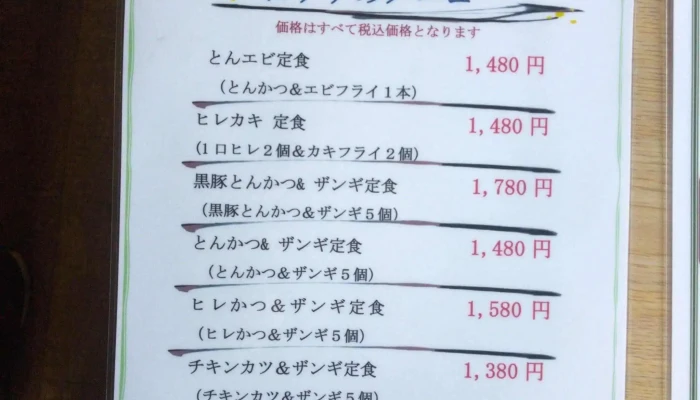 価格はすべて税込価格となります
とんエビ定食 1,480 円
(とんかつ&エビフライ1本)
ヒレカキ 定食 1,480 円
(1口ヒレ2個&カキフライ2個)
黒豚とんかつ& ザンギ定食 1,780 円
(黒豚とんかつ&ザンギ5個)
とんかつ& ザンギ定食 1,480 円
(とんかつ&ザンギ5個)
ヒレかつ&ザンギ定食 1,580 円
(ヒレかつ&ザンギ5個)
チキンカツ&ザンギ定食 1,380 円
(チキンカツ&ザンギ5個)